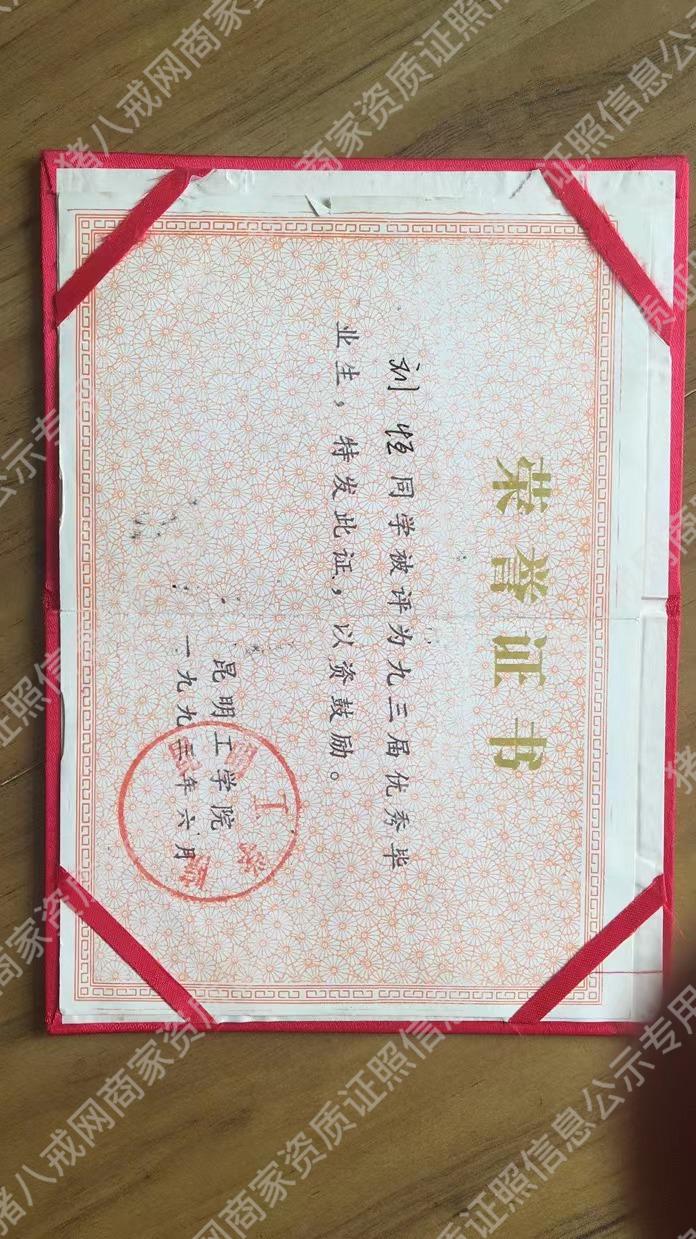 荣誉证书
刘恒同学被评为九三届优秀毕
业生，特发此证，以资鼓励。
昆明工学院
一九九三年六月
昆明工学院
猪八戒网商家资质证照信息公示专用